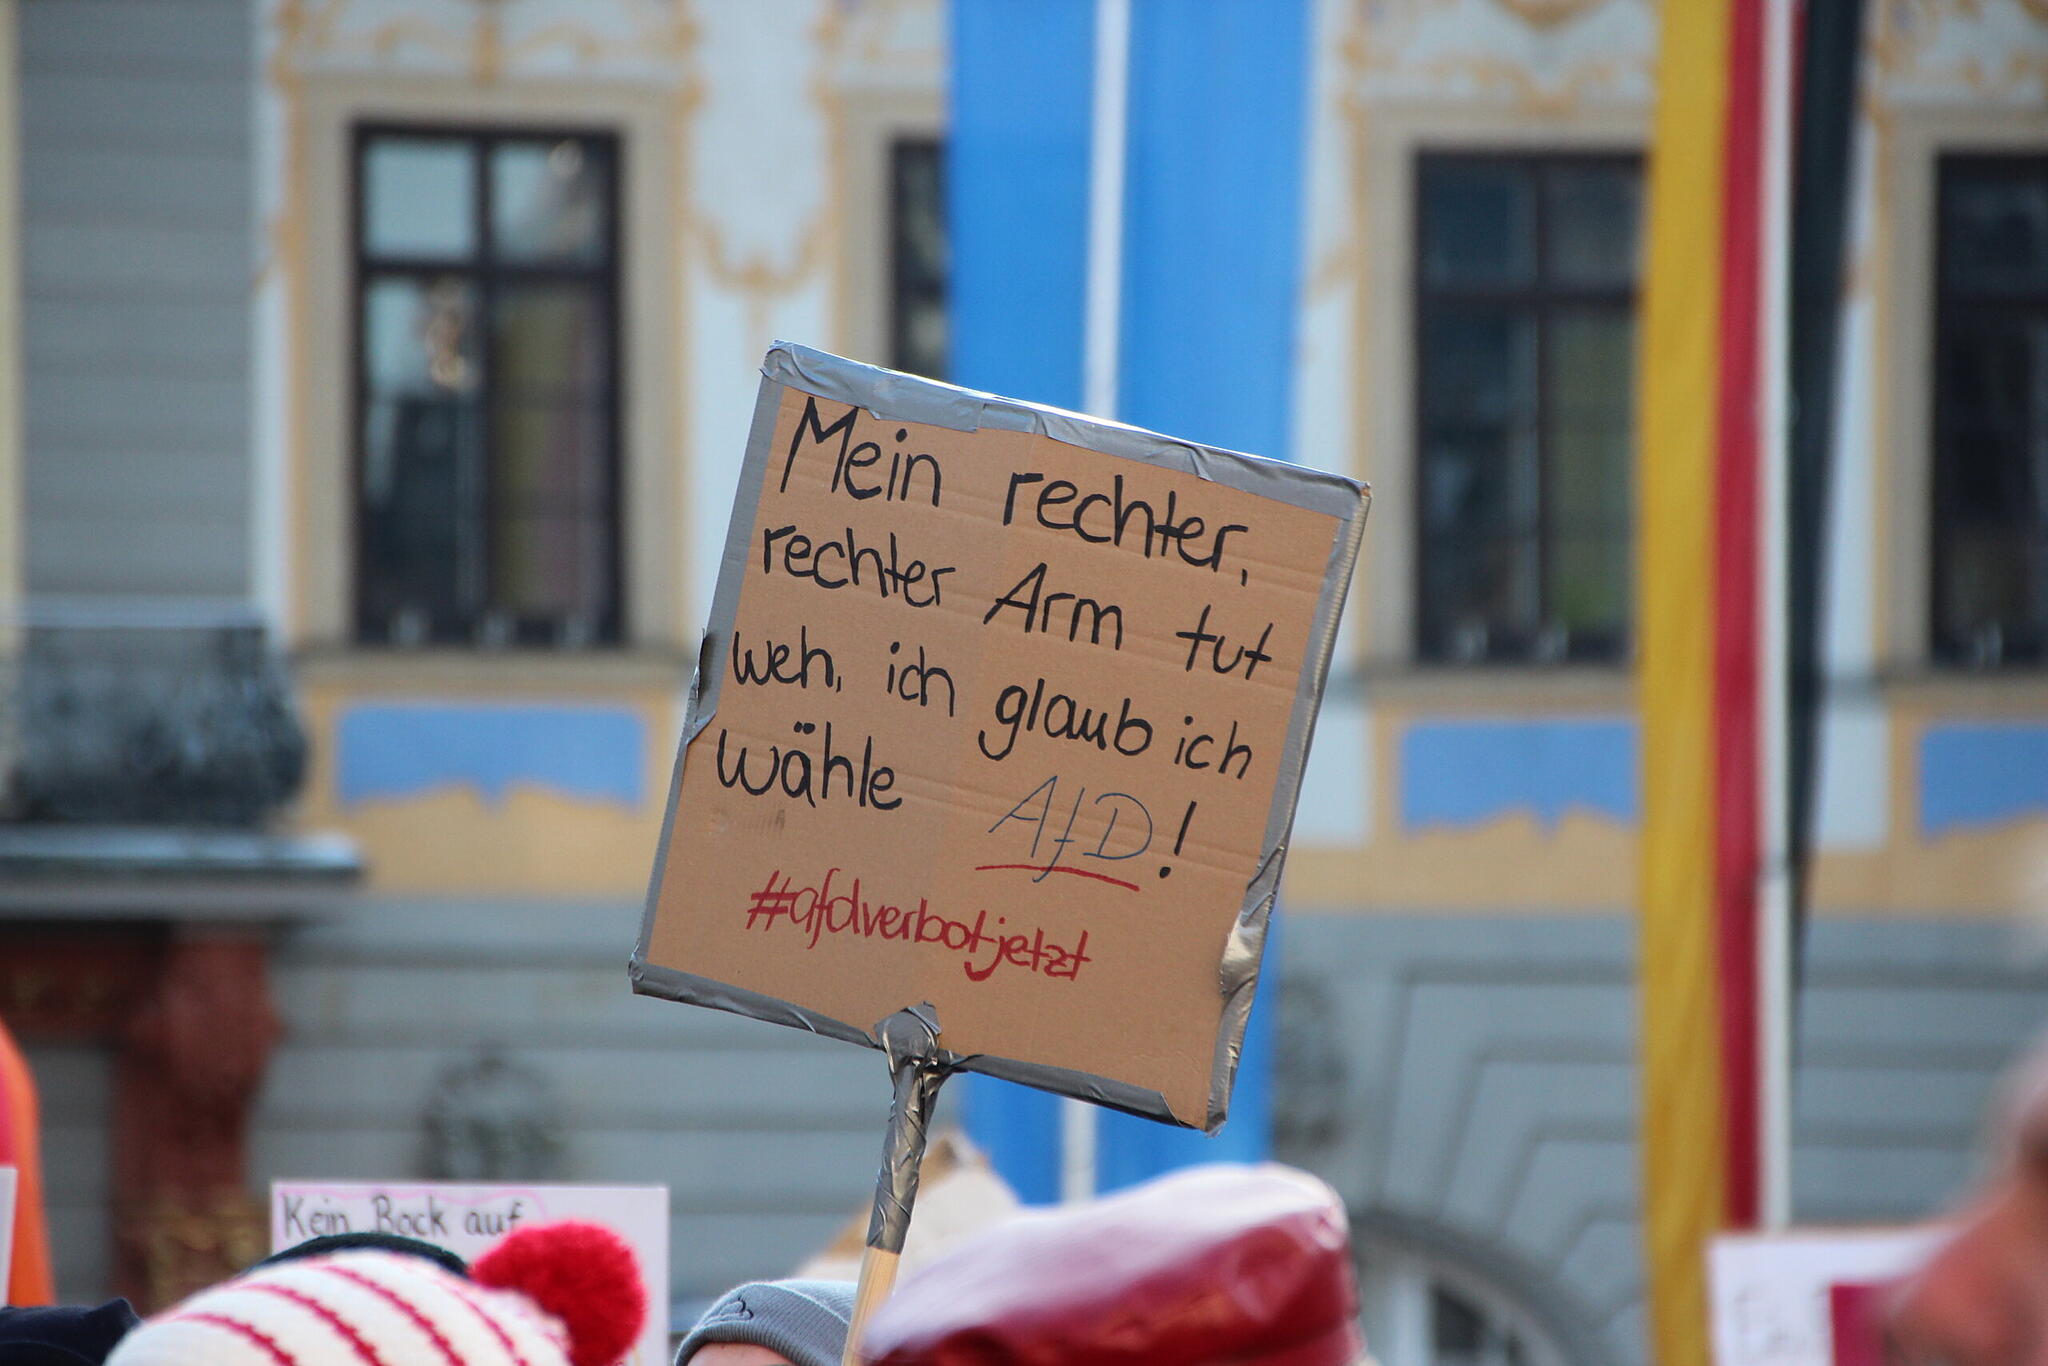 Mein rechter,
rechter Arm tut
weh, ich glaub ich
wähle AfD!
#afdverbotjetzt
Kein Bock auf